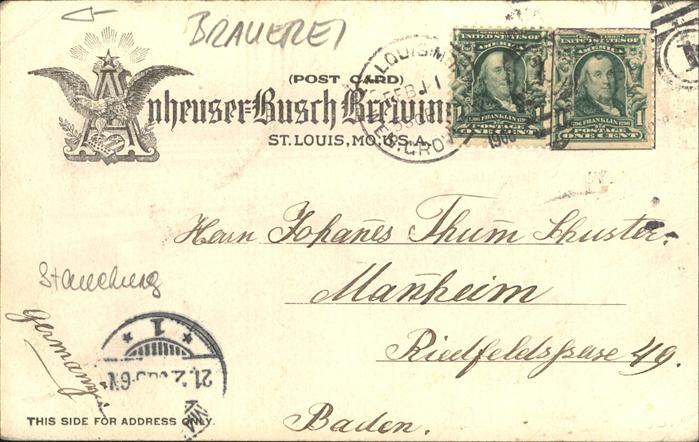 BRAUEREI
(POST CARD)
Anheuser-Busch Brewing
ST. LOUIS, MO. U.S.A.
FEB 11
UNITED STATES OF AMERICA
FRANKLIN
POSTAGE
1 ONE CENT 1
UNITED STATES OF AMERICA
FRANKLIN
POSTAGE
1 ONE CENT 1
Herrn Johanes Thum Schuster.
Manheim
Riedfeldstrase 49.
Baden.
Germany
1
21.2
THIS SIDE FOR ADDRESS ONLY.